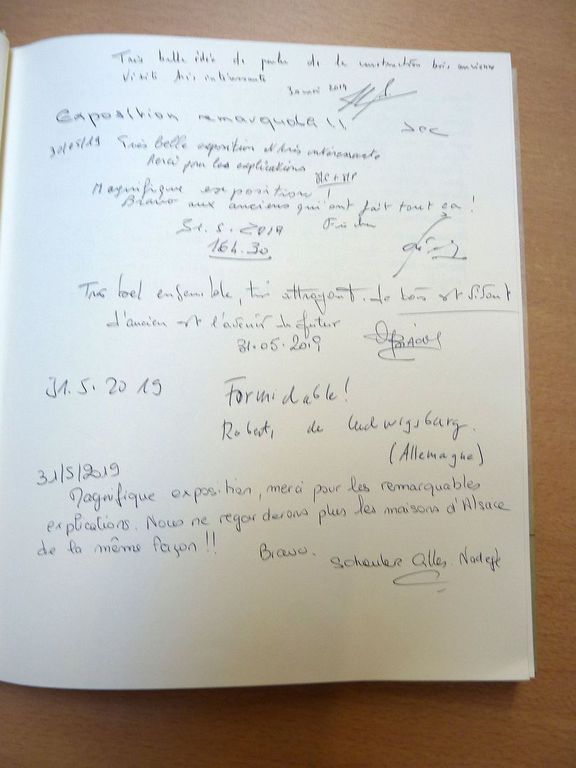 Très belle idée de parler de la construction bois ancienne
Visite très intéressante
30 mai 2019
Exposition remarquable !!
30/05/19 Très belle exposition et très intéressante
Merci pour les explications
Magnifique exposition !
Bravo aux anciens qui ont fait tout ça !
31.5.2019
16h.30
Très bel ensemble, très attrayant. Le bois est
d'ancien est l'avenir du futur
31.05.2019
31.5.2019 Formidable !
Robert, de Ludwigsburg.
(Allemagne)
31/5/2019
Magnifique exposition, merci pour les remarquables
explications. Nous ne regarderons plus les maisons d'Alsace
de la même façon !! Bravo.
Nadège